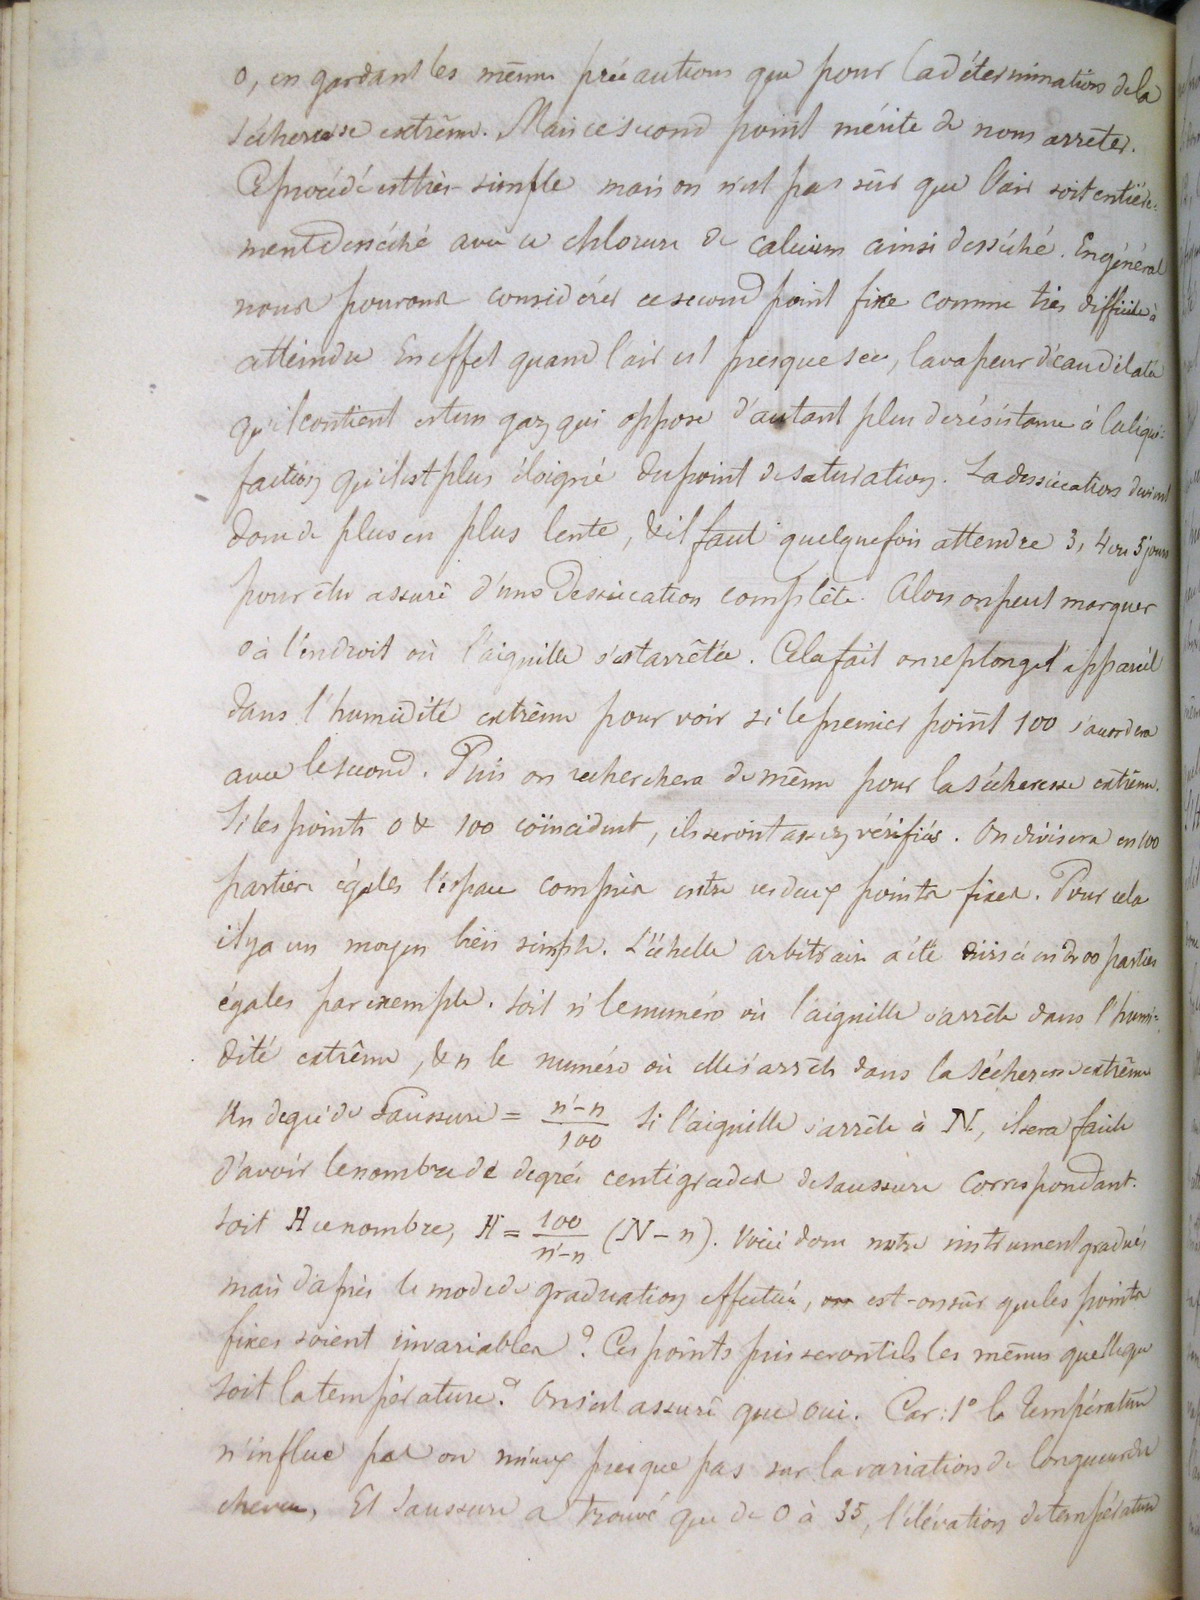 0, en gardant les même précautions que pour la détermination de la
sécheresse extrême. Mais ce second point mérite de nous arrêter.
Ce procédé est très-simple mais on n'est pas sûr que l'air soit entière-
ment desséché avec ce chlorure de calcium ainsi desséché. En général
nous pouvons considérer ce second point fixe comme très difficile à
atteindre En effet quand l'air est presque sec, la vapeur d'eau dilatée
qu'il contient est un gaz qui oppose d'autant plus de résistance à la liqué-
faction qu'il est plus éloigné du point de saturation. La dessiccation devient
donc de plus en plus lente, & il faut quelquefois attendre 3, 4 ou 5 jours
pour être assuré d'une dessiccation complète. Alors on peut marquer
0 à l'endroit où l'aiguille s'est arrêtée. Cela fait on replonge l'appareil
dans l'humidité extrême pour voir si le premier point 100 s'accordera
avec le second. Puis on recherchera de même pour la sécheresse extrême.
Si les points 0 & 100 coïncident, ils seront assez vérifiés. On divisera en 100
parties égales l'espace compris entre ces deux points fixes. Pour cela
il y a un moyen bien simple. L'échelle arbitraire a été divisé en 200 parties
égales par exemple. Soit n' le numéro où l'aiguille s'arrête dans l'humi-
dité extrême, & n le numéro où elle s'arrête dans la sécheresse extrême
Un degré de Saussure = n'-n/100 Si l'aiguille s'arrête à N, il sera facile
d'avoir le nombre de degrés centigrades de Saussure correspondant.
Soit H ce nombre, H = 100/n'-n (N-n). Voici donc notre instrument gradué,
mais d'après le mode de graduation effectué, est-on sûr que les points
fixes soient invariables? Ces points fixes seront ils les mêmes quelle que
soit la température? On s'est assuré que oui. Car: 1° la température
n'influe pas ou mieux presque pas sur la variation de longueur du
cheveu, Et Saussure a trouvé que de 0 à 35, l'élévation de température